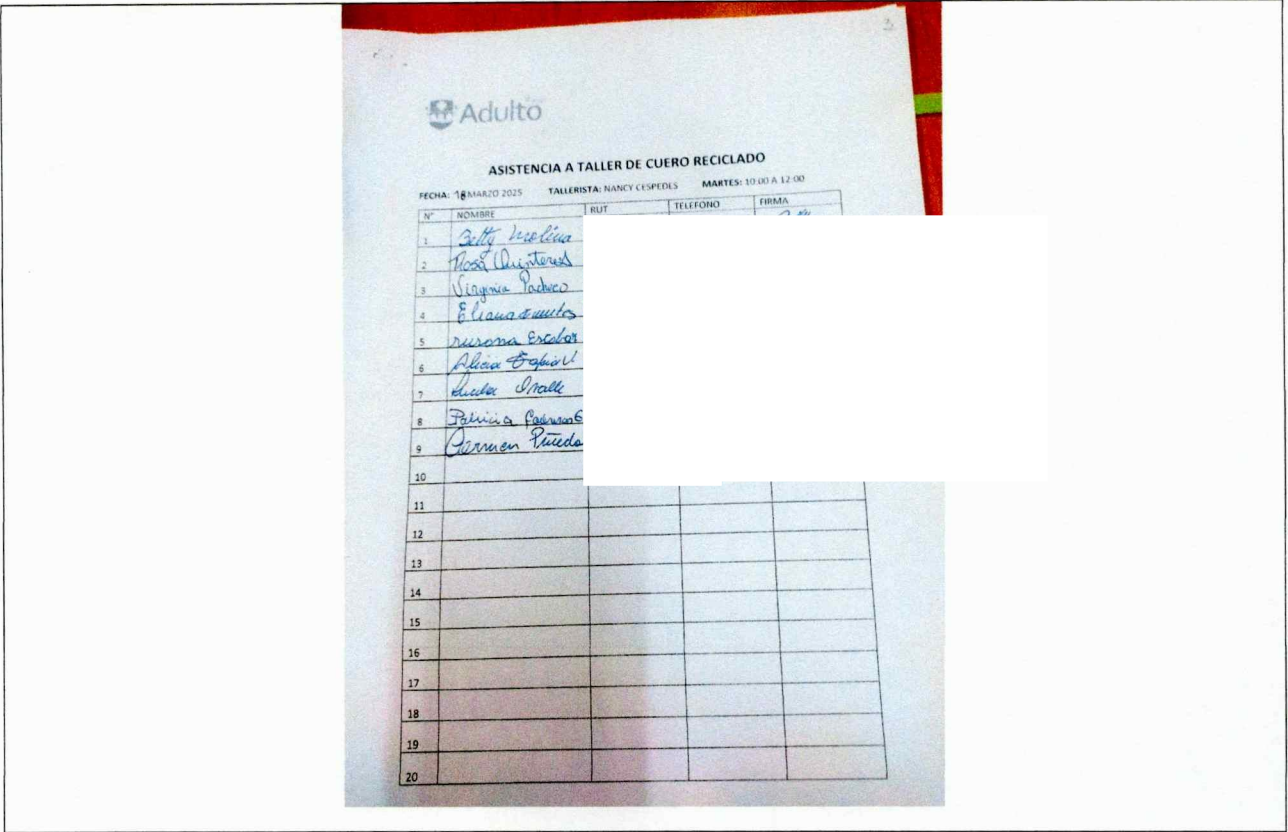 3
Adulto
ASISTENCIA A TALLER DE CUERO RECICLADO
FECHA: 18 MARZO 2025 TALLERISTA: NANCY CESPEDES MARTES: 10:00 A 12:00
N° NOMBRE RUT TELEFONO FIRMA
1 Betty Molina
2 Rosa Quinteros
3 Virginia Pacheco
4 Eliana
5 Escobar
6 Alicia
7 Ovalle
8 Patricia
9 Carmen Pineda
10
11
12
13
14
15
16
17
18
19
20